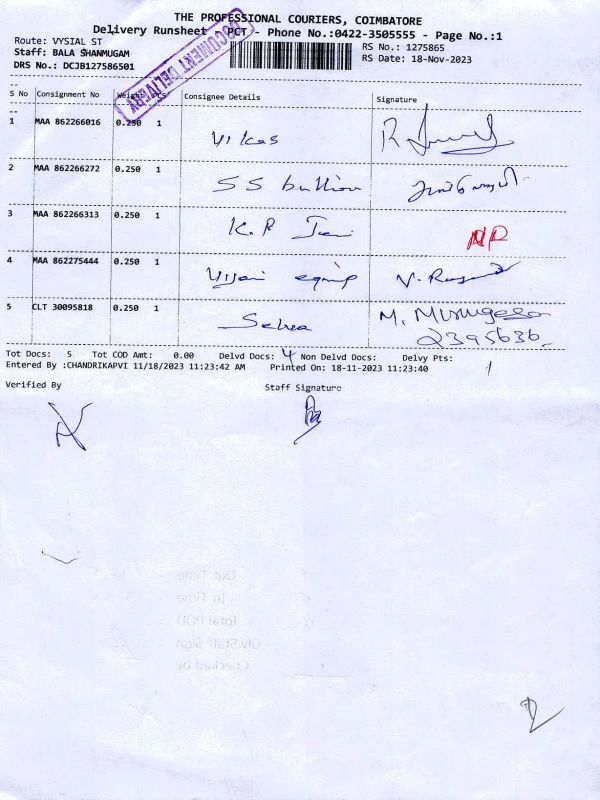 THE PROFESSIONAL COURIERS, COIMBATORE
Delivery Runsheet - PCT - Phone No.:0422-3505555 - Page No.:1
Route: VYSIAL ST
RS No.: 1275865
Staff: BALA SHANMUGAM
RS Date: 18-Nov-2023
DRS No.: DCJB127586501
DOCUMENT DELIVERY
S No Consignment No Weight PCS Consignee Details Signature
1 MAA 862266016 0.250 1 Vikas
2 MAA 862266272 0.250 1 SS bullion
3 MAA 862266313 0.250 1 K.P Jain NP
4 MAA 862275444 0.250 1 equip
5 CLT 30095818 0.250 1 Selva M. Murugesan
2395636
Tot Docs: 5 Tot COD Amt: 0.00 Delvd Docs: 4 Non Delvd Docs: 1 Delvy Pts:
Entered By :CHANDRIKAPVI 11/18/2023 11:23:42 AM Printed On: 18-11-2023 11:23:40
Verified By Staff Signature
Out Time
In Time
Total POD
Dly.Staff Sign
Checked by